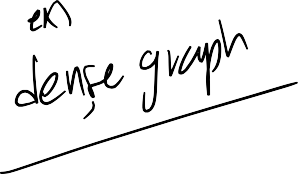 en
dense graph